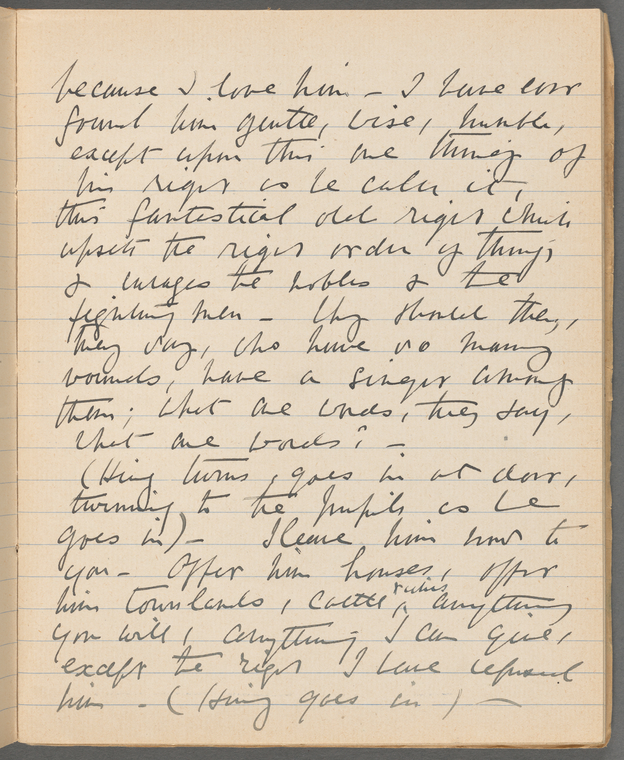 because I love him – I have ever
found him gentle, wise, humble,
except upon this one thing of
his right as he calls it,
this fantastical old right which
upsets the right order of things
& enrages the nobles & the
fighting men – Why should they,
they say, who have so many
wounds, have a singer among
them; what are words, they say,
what are words? –
(King turns, goes in at door,
turning to the pupils as he
goes in) – I leave him now to
you – Offer him houses, offer
him townlands, cattle, rings anything
you will, anything I can give,
except the right I have refused
him – (King goes in) –